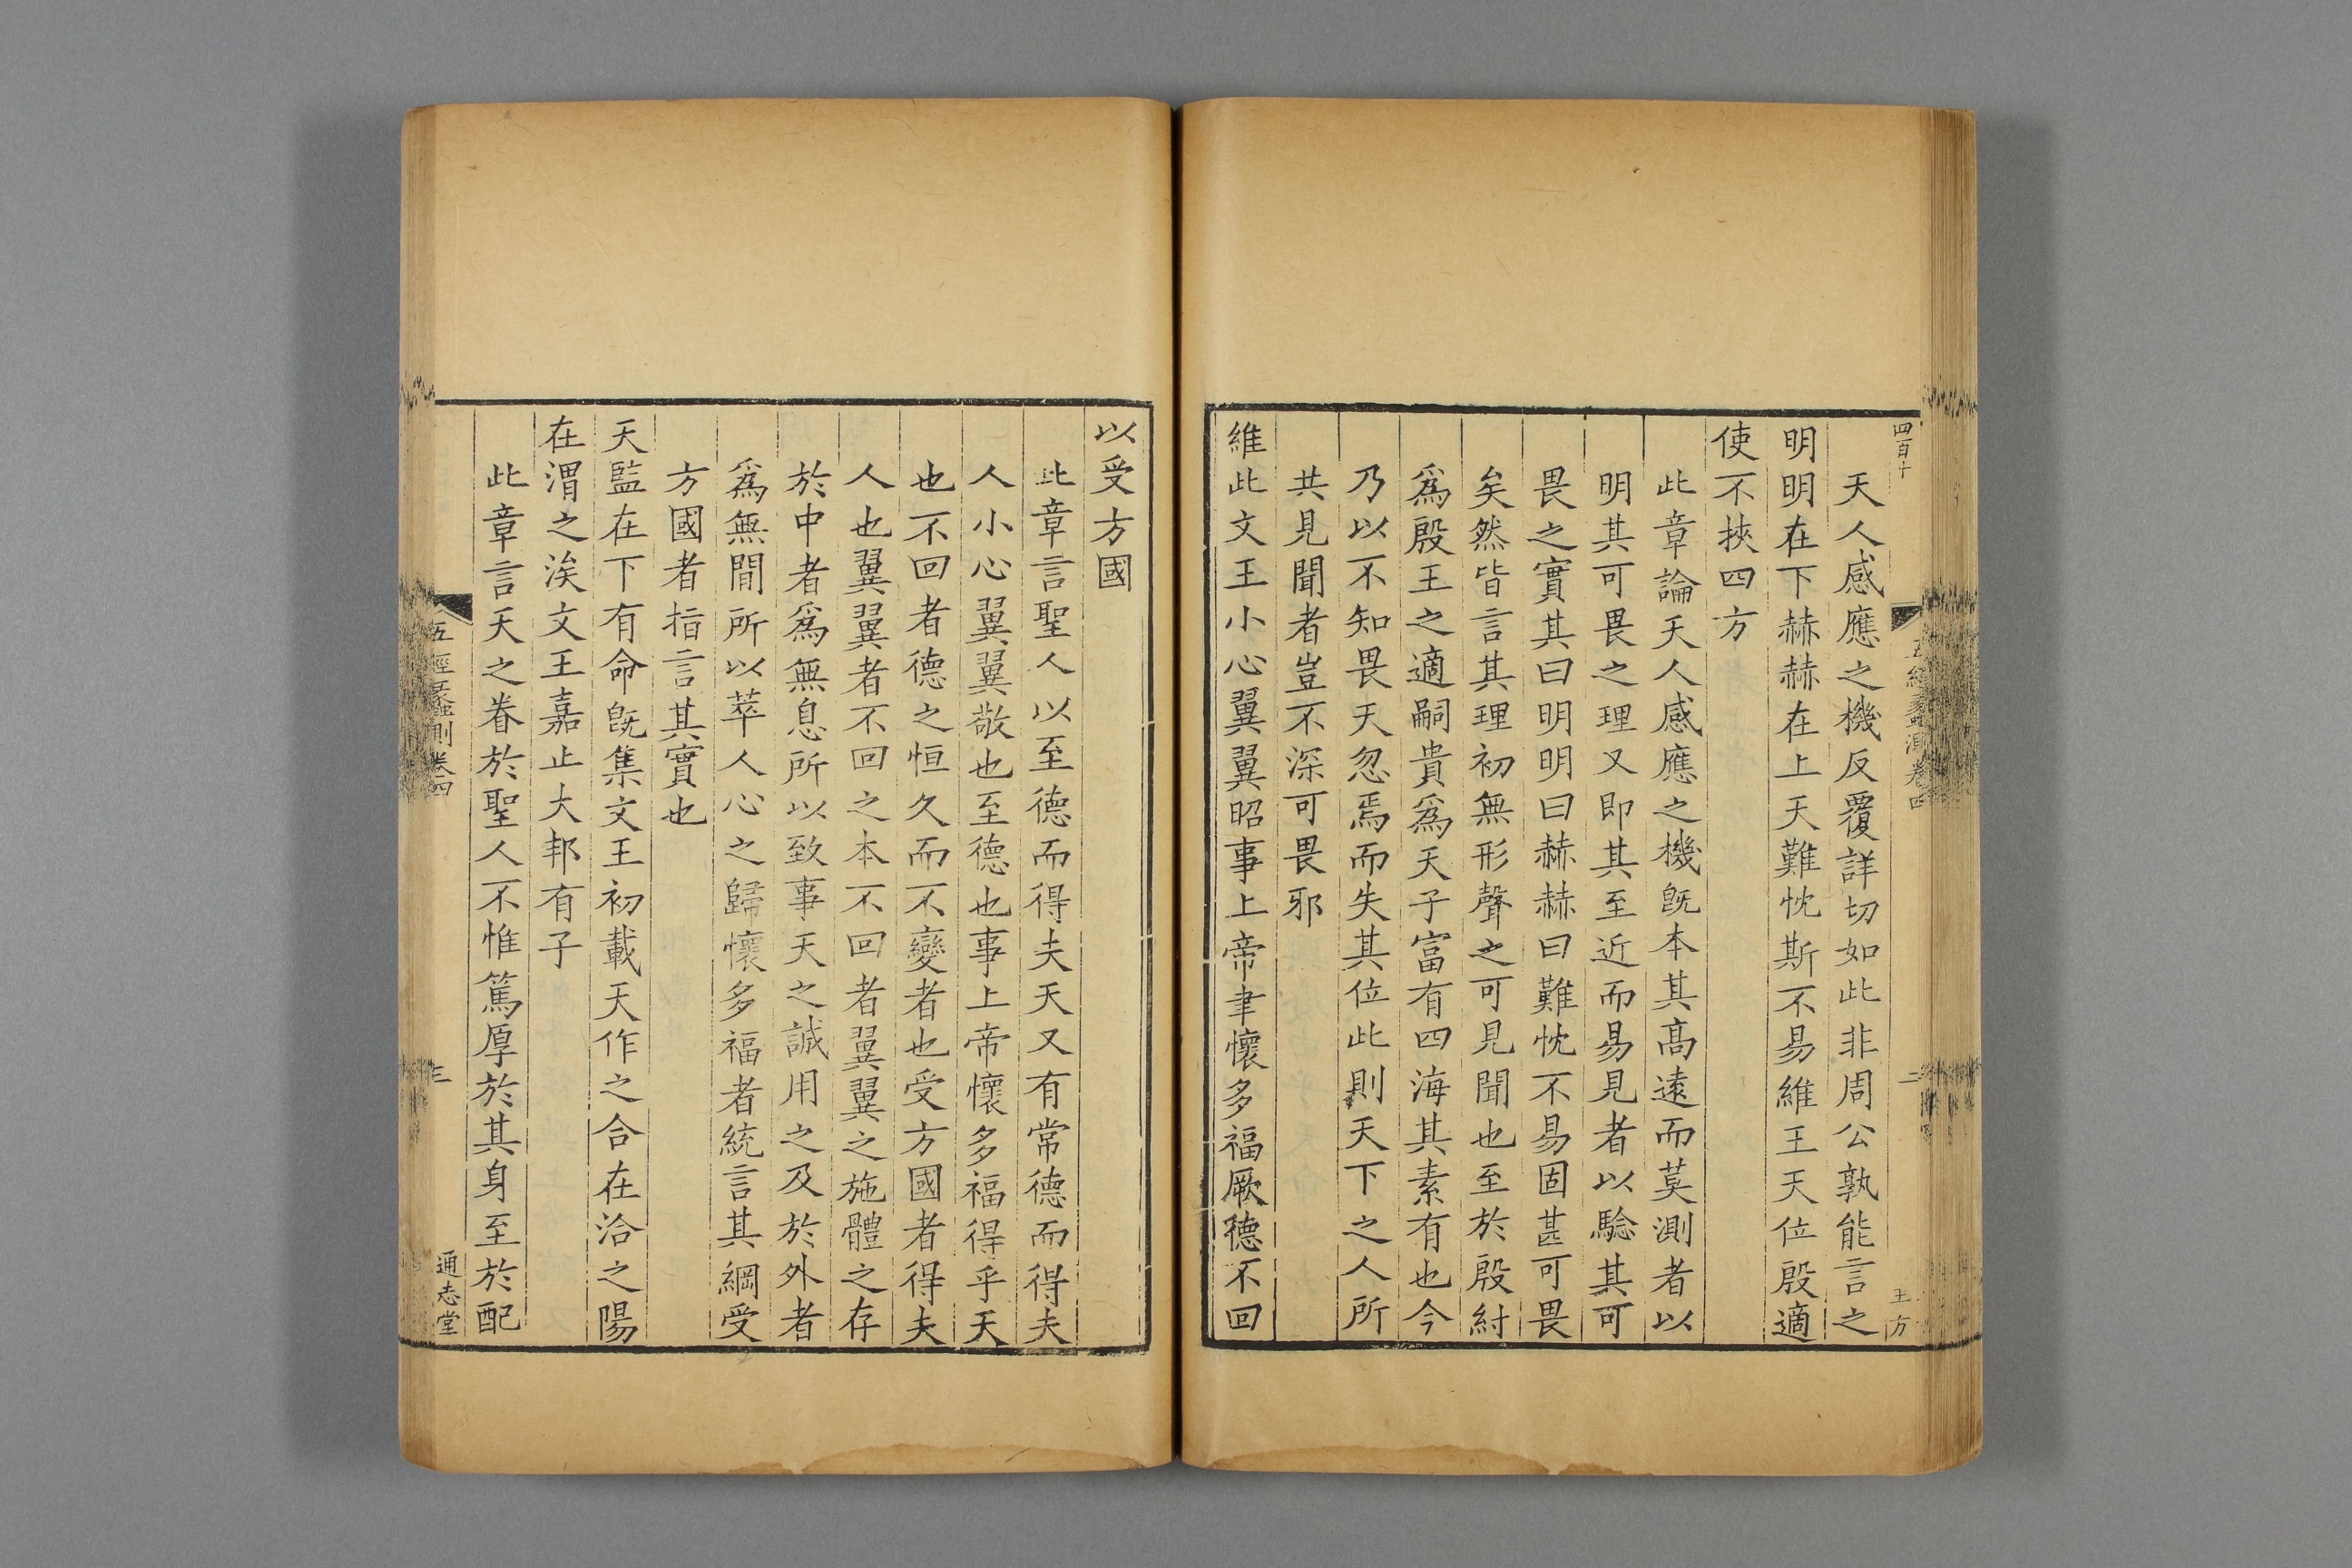 四百十
五經蠡測卷四
二
王方
天人感應之機反覆詳切如此非周公孰能言之
明明在下赫赫在上天難忱斯不易維王天位殷適
使不挾四方
此章論天人感應之機旣本其高遠而莫測者以
明其可畏之理又即其至近而易見者以驗其可
畏之實其曰明明曰赫赫曰難忱不易固甚可畏
矣然皆言其理初無形聲之可見聞也至於殷紂
爲殷王之適嗣貴爲天子富有四海其素有也今
乃以不知畏天忽焉而失其位此則天下之人所
共見聞者豈不深可畏邪
維此文王小心翼翼昭事上帝聿懷多福厥德不回
以受方國
此章言聖人以至德而得夫天又有常德而得夫
人小心翼翼敬也至德也事上帝懷多福得乎天
也不回者德之恒久而不變者也受方國者得夫
人也翼翼者不回之本不回者翼翼之施體之存
於中者爲無息所以致事天之誠用之及於外者
爲無間所以萃人心之歸懷多福者統言其綱受
方國者指言其實也
天監在下有命旣集文王初載天作之合在洽之陽
在渭之涘文王嘉止大邦有子
此章言天之眷於聖人不惟篤厚於其身至於配
五經蠡測卷四
三
通志堂